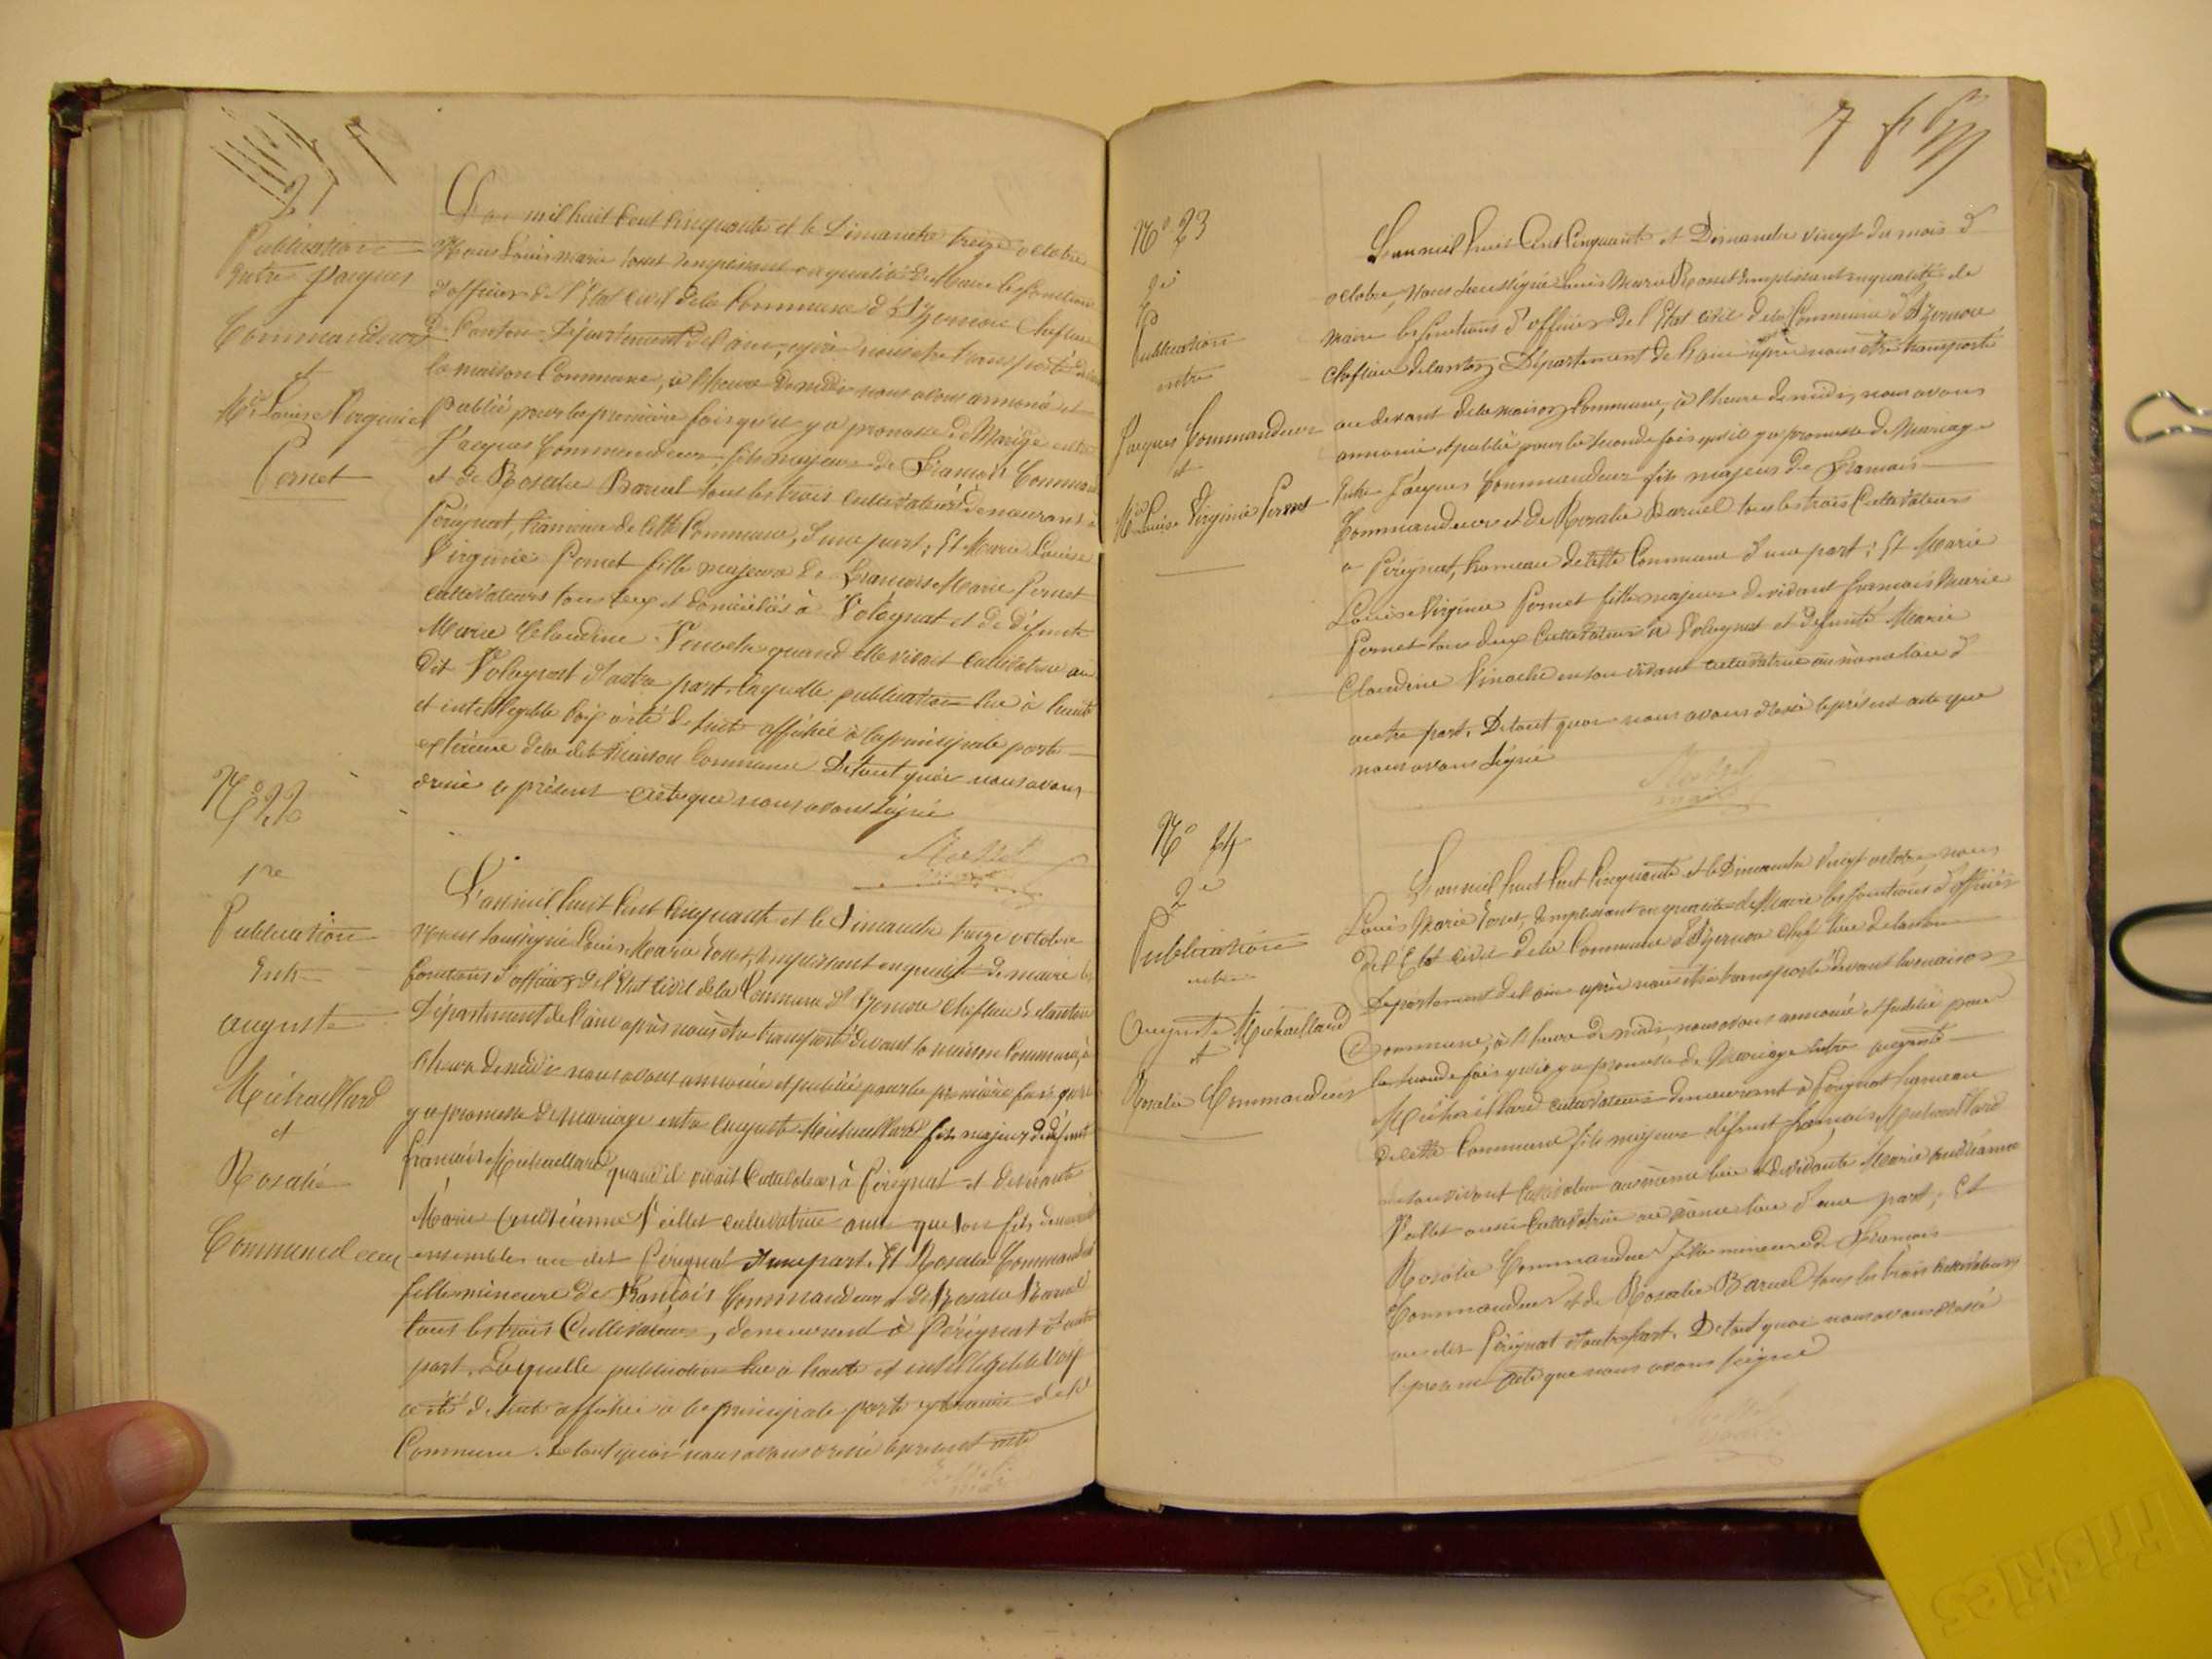 7
21
Publication
entre Jacques
Commandeur
et
Mie Louise Virginie
Pernet
L'an mil huit Cent Cinquante et le Dimanche treize octobre
Nous Louis marie Rosset remplissant en qualité de Maire les fonctions
d'officier de l'Etat Civil de la Commune d'Izernore Cheflieu
de Canton Département de l'ain, après nous être transporté devant
la maison Commune, à l'heure de midi nous avons annoncé et
publié pour la première fois qu'il y a promesse de Mariage entre
Jacques Commandeur, fils majeur de François Commandeur
et de Rosalie Baruel tous les trois cultivateurs demeurant à
Pérignat, hameau de cette Commune, d'une part; Et Marie Louise
Virginie Pernet fille majeure de François Marie Pernet
cultivateurs tous deux et domiciliés à Volognat et de défunte
Marie Claudine quand elle vivait cultivatrice au
dit Volognat d'autre part. Laquelle publication lue à haute
et intelligible voix a été de suite affichée à la principale porte
extérieure de la dite Maison Commune De tout quoi nous avons
dressé le présent acte que nous avons signé
Rosset
maire
No 22
1re
Publication
Entre
auguste
Michaillard
et
Rosalie
Commandeur
L'an mil huit Cent Cinquante et le Dimanche treize octobre
Nous soussigné Louis Marie Rosset, remplissant en qualité de maire les
fonctions d'officier de l'Etat Civil de la Commune d'Izernore Cheflieu de Canton
Département de l'ain après nous être transporté devant la maison Commune, à
l'heure de midi nous avons annoncé et publié pour la première fois qu'il
y a promesse de mariage entre Auguste Michaillard fils majeur de défunt
françois Michaillard quand il vivait Cultivateur à Pérignat et de vivante
Marie Andréanne Vallet cultivatrice ainsi que son fils demeurant
ensemble au dit Pérignat d'une part. Et Rosalie Commandeur
fille mineure de François Commandeur et de Rosalie Baruel
tous les trois Cultivateurs, demeurant à Pérignat d'autre
part. Laquelle publication lue à haute et intelligible voix
a été de suite affichée à la principale porte extérieure de la
Commune. De tout quoi nous avons dressé le présent acte
Rosset
maire
7
No 23
2e
Publication
entre
Jacques Commandeur
et
Mie Louise Virginie Pernet
L'an mil huit Cent Cinquante et Dimanche vingt du mois d'
octobre, Nous soussigné Louis Marie Rosset remplissant en qualité de
maire les fonctions d'officier de l'Etat civil de la Commune d'Izernore
Cheflieu de canton Département de l'ain après nous être transporté
au devant de la maison Commune, à l'heure de midi, nous avons
annoncé et publié pour la seconde fois qu'il y a promesse de Mariage
Entre Jacques Commandeur fils majeur de François
Commandeur et de Rosalie Baruel tous les trois Cultivateurs
à Pérignat, hameau de cette Commune d'une part; Et Marie
Louise Virginie Pernet fille majeure de vivant françois Marie
Pernet tous deux Cultivateurs à Volognat et défunte Marie
Claudine Vinoche en son vivant cultivatrice au même lieu d'
autre part. De tout quoi nous avons dressé le présent acte que
nous avons signé
Rosset
maire
No 24
2e
Publication
entre
Auguste Michaillard
et
Rosalie Commandeur
L'an mil huit Cent Cinquante et le Dimanche Vingt octobre, nous
Louis Marie Rosset, remplissant en qualité de Maire les fonctions d'officier
de l'Etat civil de la Commune d'Izernore chef lieu de canton
Département de l'ain après nous être transporté devant la maison
Commune, à l'heure de midi, nous avons annoncé et publié pour
la seconde fois qu'il y a promesse de Mariage Entre auguste
Michaillard cultivateur demeurant à Pérignat hameau
de cette Commune fils majeur défunt françois Michaillard
en son vivant Cultivateur au même lieu et de vivante Marie Andréanne
Vallet aussi Cultivatrice au même lieu d'une part; Et
Rosalie Commandeur fille mineure de François
Commandeur et de Rosalie Baruel tous les trois cultivateurs
au dit Pérignat d'autre part. De tout quoi nous avons dressé
le présent acte que nous avons signé
Rosset
maire
Friskies